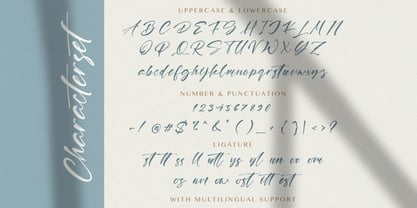 Characterset
UPPERCASE & LOWERCASE
ABCDEFGHIJKLMN
OPQRSTUVWXYZ
abcdefghijklmnopqrstuvwxyz
NUMBER & PUNCTUATION
1234567890
LIGATURE
WITH MULTILINGUAL SUPPORT